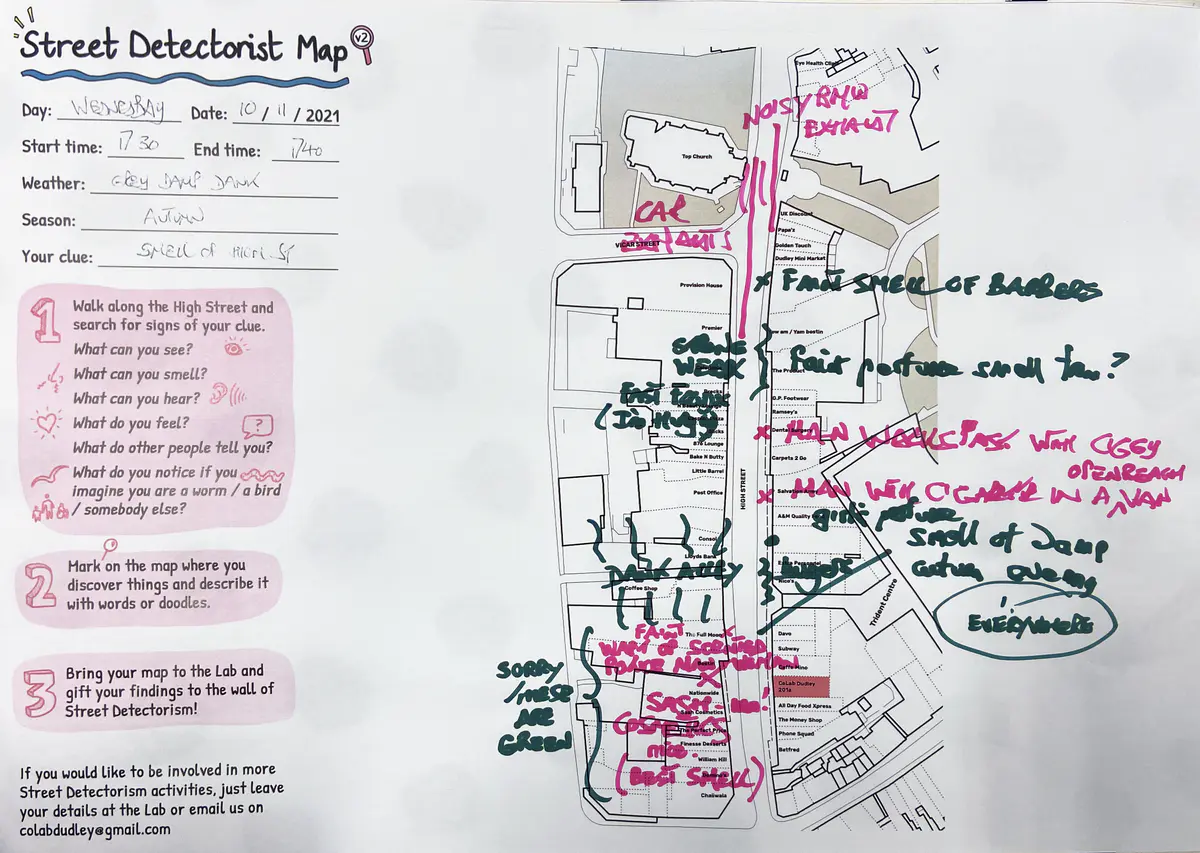 Street Detectorist Map v2
Day: WEDNESDAY Date: 10 / 11 / 2021
Start time: 1730 End time: 1740
Weather: GREY DAMP DANK
Season: AUTUMN
Your clue: SMELL OF HIGH ST
1
Walk along the High Street and
search for signs of your clue.
What can you see?
What can you smell?
What can you hear?
What do you feel?
?
What do other people tell you?
What do you notice if you
imagine you are a worm / a bird
/ somebody else?
2
Mark on the map where you
discover things and describe it
with words or doodles.
3
Bring your map to the Lab and
gift your findings to the wall of
Street Detectorism!
If you would like to be involved in more
Street Detectorism activities, just leave
your details at the Lab or email us on
colabdudley@gmail.com
Eye Health Clinic
NOISY BMW
EXHAUST
Top Church
CAR
VICAR STREET
UK Discount
Papa's
Golden Touch
Dudley Mini Market
Provision House
X FAINT SMELL OF BARBERS
Premier
STRONG
WEED
Faint perfume smell
The Product
G.P. Footwear
Ramsey's
(I'm Hungry
Dental Surgery
B7G Lounge
Bake N Butty
Carpets 2 Go
X MAN WALKS PAST WITH CIGGY
Little Barrel
Post Office
HIGH STREET
Salvation Army
X MAN WITH CIGARETTE IN A OPENREACH VAN
A&M Quality
smell of Damp
EVERYWHERE
Lloyds Bank
DANK ALLEY
Coffee Shop
Trident Centre
The Full Moon
Davo
Subway
FAINT
WAFT OF SCENTED
Caffe Mino
CoLab Dudley
201a
Nationwide
SORRY
THESE
ARE
GREEN
Sash Cosmetics
All Day Food Xpress
The Money Shop
COSMETICS
nice.
The Perfect Price
Finesse Desserts
Phone Squad
Betfred
William Hill
(BEST SMELL)
Chaiiwala